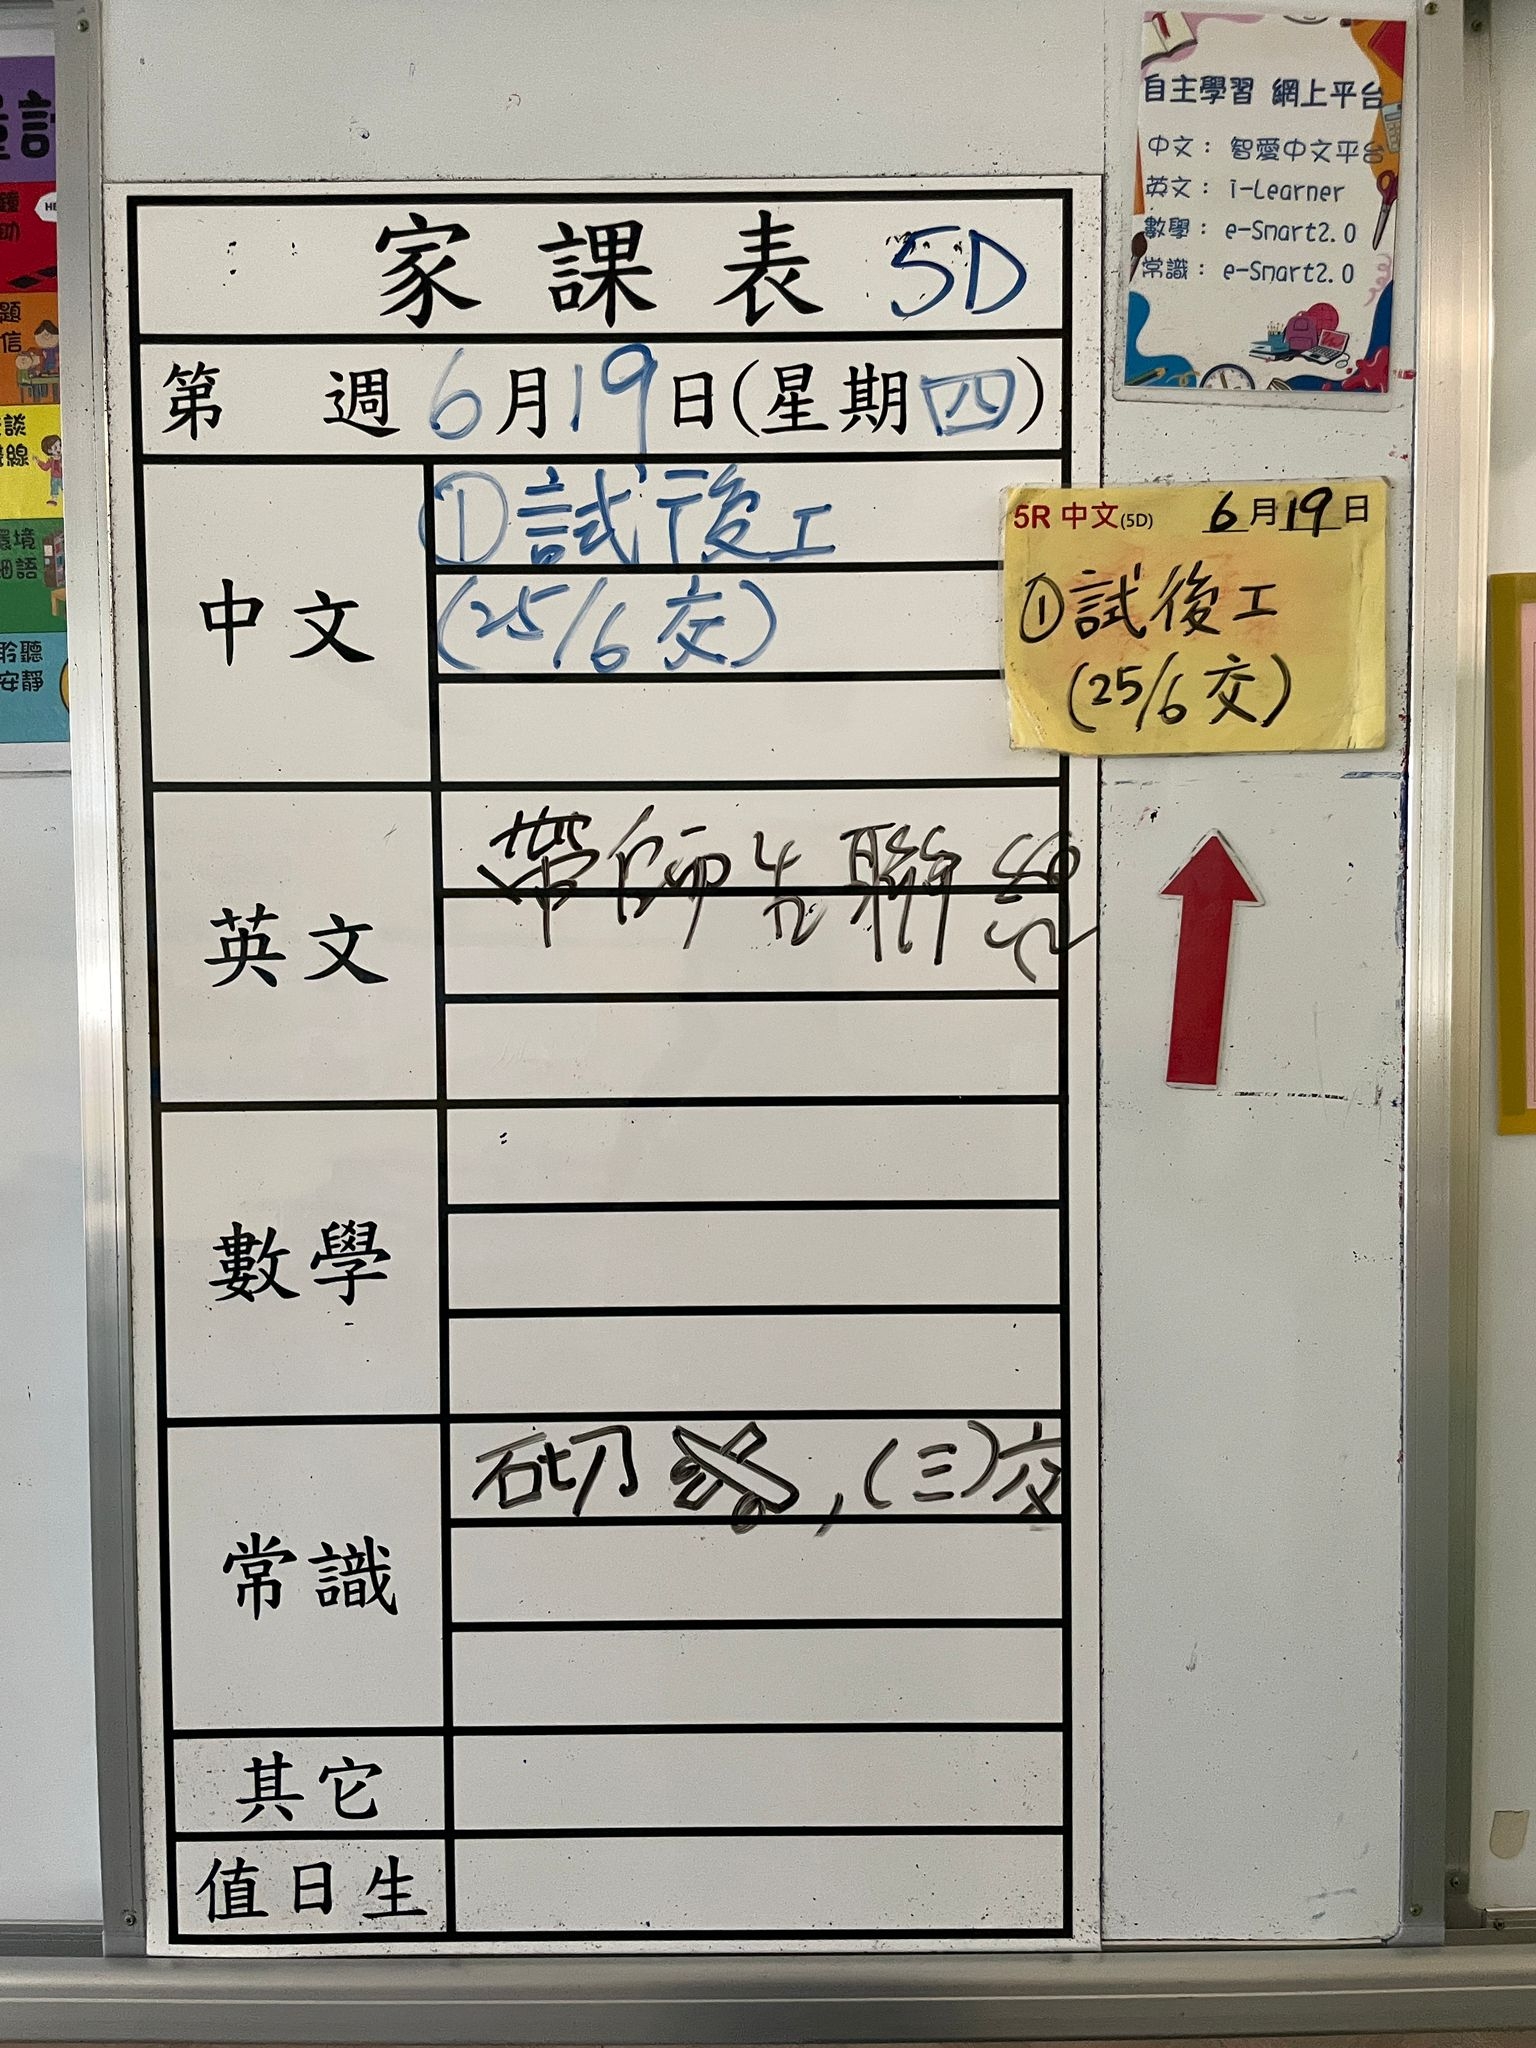 自主學習 網上平台
中文： 智愛中文平台
英文： i-Learner
數學： e-Smart2.0
常識： e-Smart2.0
家課表 5D
第 週 6月19日(星期四)
中文
①試後工
(25/6 交)
5R 中文(5D) 6月19日
①試後工
(25/6 交)
英文
帶師生聯
數學
常識
砌 , (三)交
其它
值日生
談
環境
細語
聆聽
安靜